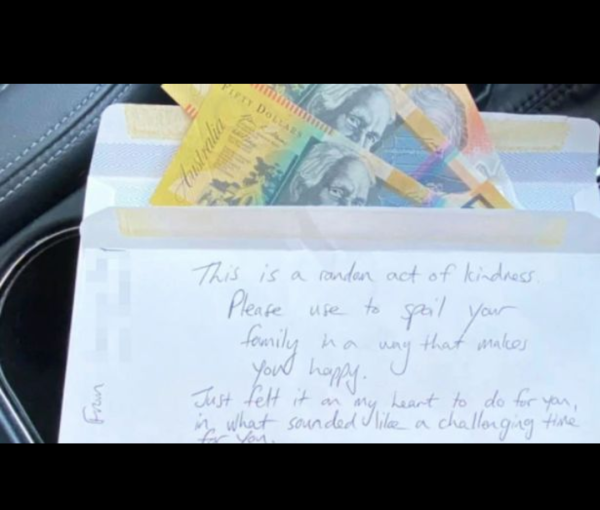 FIFTY DOLLARS
Australia
This is a random act of kindness.
Please use to spoil your
family in a way that makes
you happy.
Just felt it on my heart to do for you,
in what sounded like a challenging time
for you.
From